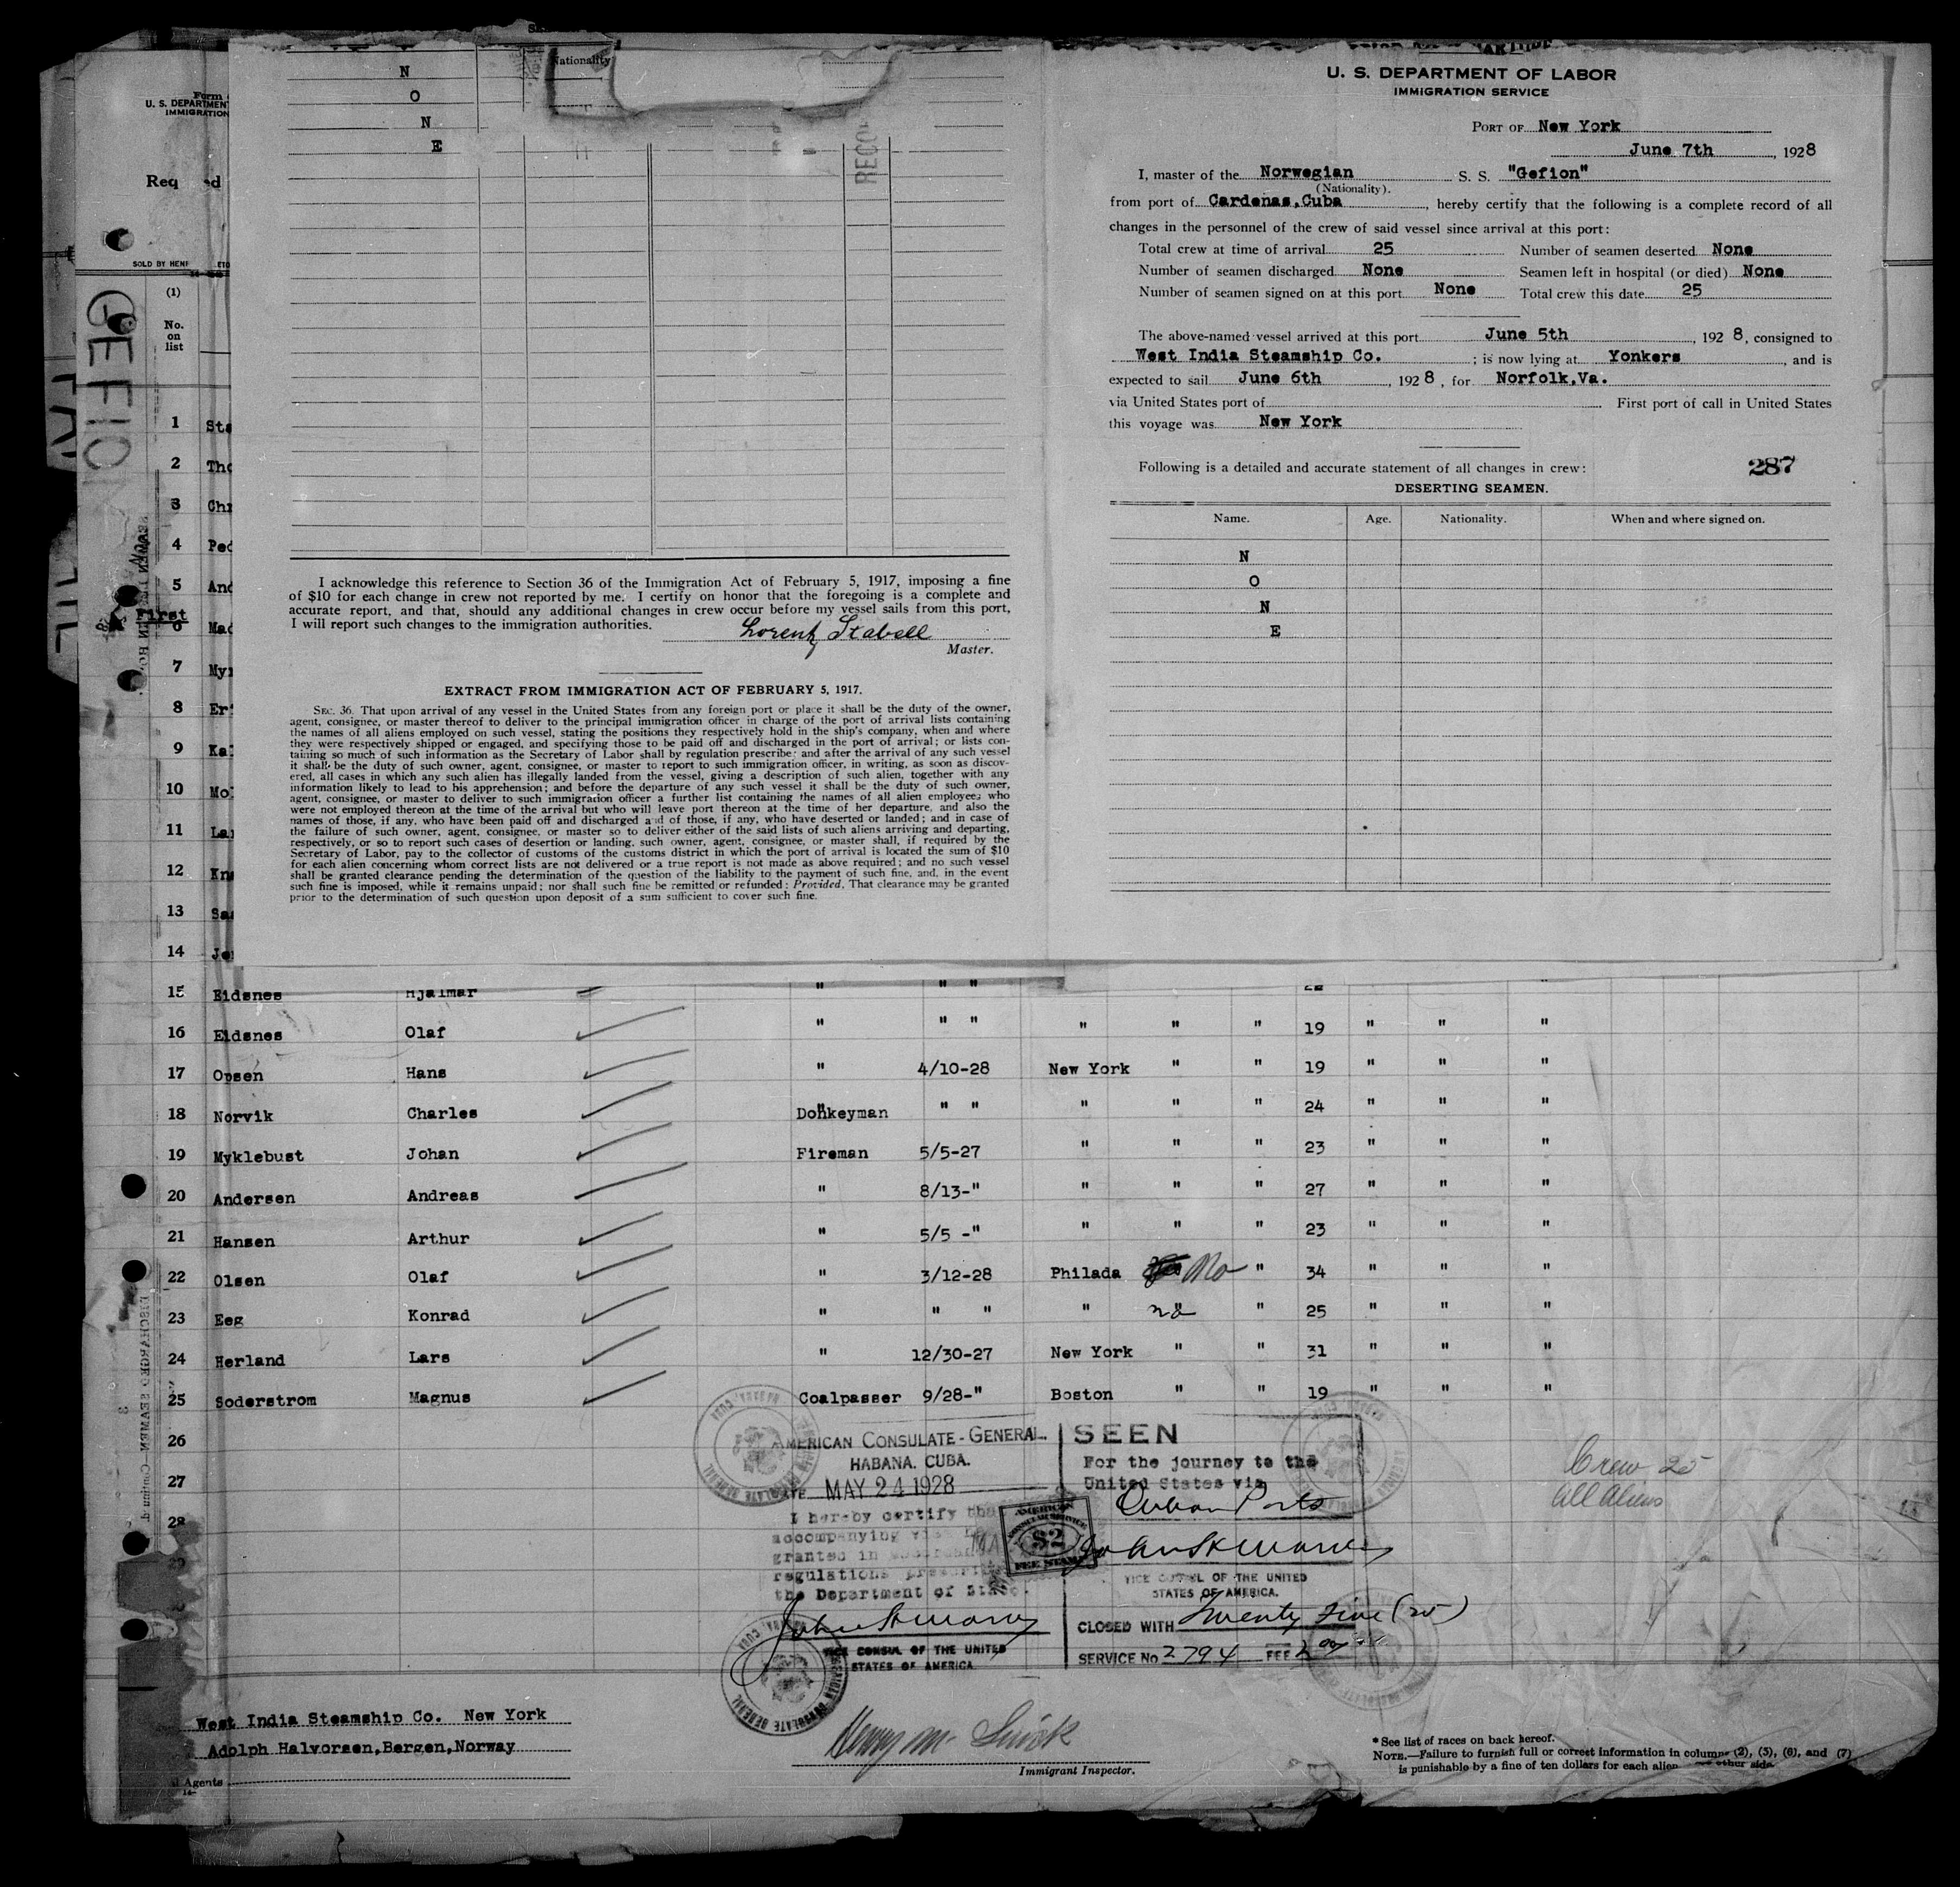 Form
U. S. DEPARTMENT
IMMIGRATION
SOLD BY
GEFION
(1)
No.
on
list
First
1 Sta
2 Tho
3 Chr
4 Ped
5 And
6 Mad
7 Myr
8
9
10
11
12
13
14
Nationality
N
O
N
E
I acknowledge this reference to Section 36 of the Immigration Act of February 5, 1917, imposing a fine
of $10 for each change in crew not reported by me. I certify on honor that the foregoing is a complete and
accurate report, and that, should any additional changes in crew occur before my vessel sails from this port,
I will report such changes to the immigration authorities. Lorentz Stabell
Master.
EXTRACT FROM IMMIGRATION ACT OF FEBRUARY 5, 1917.
SEC. 36. That upon arrival of any vessel in the United States from any foreign port or place it shall be the duty of the owner,
agent, consignee, or master thereof to deliver to the principal immigration officer in charge of the port of arrival lists containing
the names of all aliens employed on such vessel, stating the positions they respectively hold in the ship's company, when and where
they were respectively shipped or engaged, and specifying those to be paid off and discharged in the port of arrival; or lists con-
taining so much of such information as the Secretary of Labor shall by regulation prescribe; and after the arrival of any such vessel
it shall be the duty of such owner, agent, consignee, or master to report to such immigration officer, in writing, as soon as discov-
ered, all cases in which any such alien has illegally landed from the vessel, giving a description of such alien, together with any
information likely to lead to his apprehension; and before the departure of any such vessel it shall be the duty of such owner,
agent, consignee, or master to deliver to such immigration officer a further list containing the names of all alien employees who
were not employed thereon at the time of the arrival but who will leave port thereon at the time of her departure, and also the
names of those, if any, who have been paid off and discharged and of those, if any, who have deserted or landed; and in case of
the failure of such owner, agent, consignee, or master so to deliver either of the said lists of such aliens arriving and departing,
respectively, or so to report such cases of desertion or landing, such owner, agent, consignee, or master shall, if required by the
Secretary of Labor, pay to the collector of customs of the customs district in which the port of arrival is located the sum of $10
for each alien concerning whom correct lists are not delivered or a true report is not made as above required; and no such vessel
shall be granted clearance pending the determination of the question of the liability to the payment of such fine, and, in the event
such fine is imposed, while it remains unpaid; nor shall such fine be remitted or refunded: Provided, That clearance may be granted
prior to the determination of such question upon deposit of a sum sufficient to cover such fine.
U. S. DEPARTMENT OF LABOR
IMMIGRATION SERVICE
PORT OF New York
June 7th, 1928
I, master of the Norwegian S. S. "Gefion"
(Nationality).
from port of Cardenas,Cuba, hereby certify that the following is a complete record of all
changes in the personnel of the crew of said vessel since arrival at this port:
Total crew at time of arrival 25 Number of seamen deserted None
Number of seamen discharged None Seamen left in hospital (or died) None
Number of seamen signed on at this port None Total crew this date 25
The above-named vessel arrived at this port June 5th, 1928, consigned to
West India Steamship Co. ; is now lying at Yonkers, and is
expected to sail June 6th, 1928, for Norfolk,Va.
via United States port of First port of call in United States
this voyage was New York
Following is a detailed and accurate statement of all changes in crew: 287
DESERTING SEAMEN.
Name. Age. Nationality. When and where signed on.
N
O
N
E
15 Eidsnes Hjalmar " " "
16 Eidsnes Olaf " " " " " " 19 " " "
17 Opsen Hans " 4/10-28 New York " " 19 " " "
18 Norvik Charles Donkeyman " " " " " 24 " " "
19 Myklebust Johan Fireman 5/5-27 " " " 23 " " "
20 Andersen Andreas " 8/13-" " " " 27 " " "
21 Hansen Arthur " 5/5 -" " " " 23 " " "
22 Olsen Olaf " 3/12-28 Philada No " 34 " " "
23 Eeg Konrad " " " " no " 25 " " "
24 Herland Lars " 12/30-27 New York " " 31 " " "
25 Soderstrom Magnus Coalpasser 9/28-" Boston " " 19 " " "
26
27
28
29
AMERICAN CONSULATE-GENERAL
HABANA, CUBA.
DATE MAY 24 1928
I hereby certify the
accompanying
granted in
regulations
the Department of State.
VICE CONSUL OF THE UNITED
STATES OF AMERICA
AMERICAN
CONSULAR SERVICE
$2
FEE STAMP
SEEN
For the journey to the
United States via
Cuban Ports
VICE CONSUL OF THE UNITED
STATES OF AMERICA.
CLOSED WITH Twenty Five (25)
SERVICE No 2794 FEE 2.00
Crew 25
All Aliens
West India Steamship Co. New York
Adolph Halvorsen,Bergen,Norway
Agents
Immigrant Inspector.
* See list of races on back hereof.
NOTE.—Failure to furnish full or correct information in columns (2), (5), (6), and (7)
is punishable by a fine of ten dollars for each alien other side.